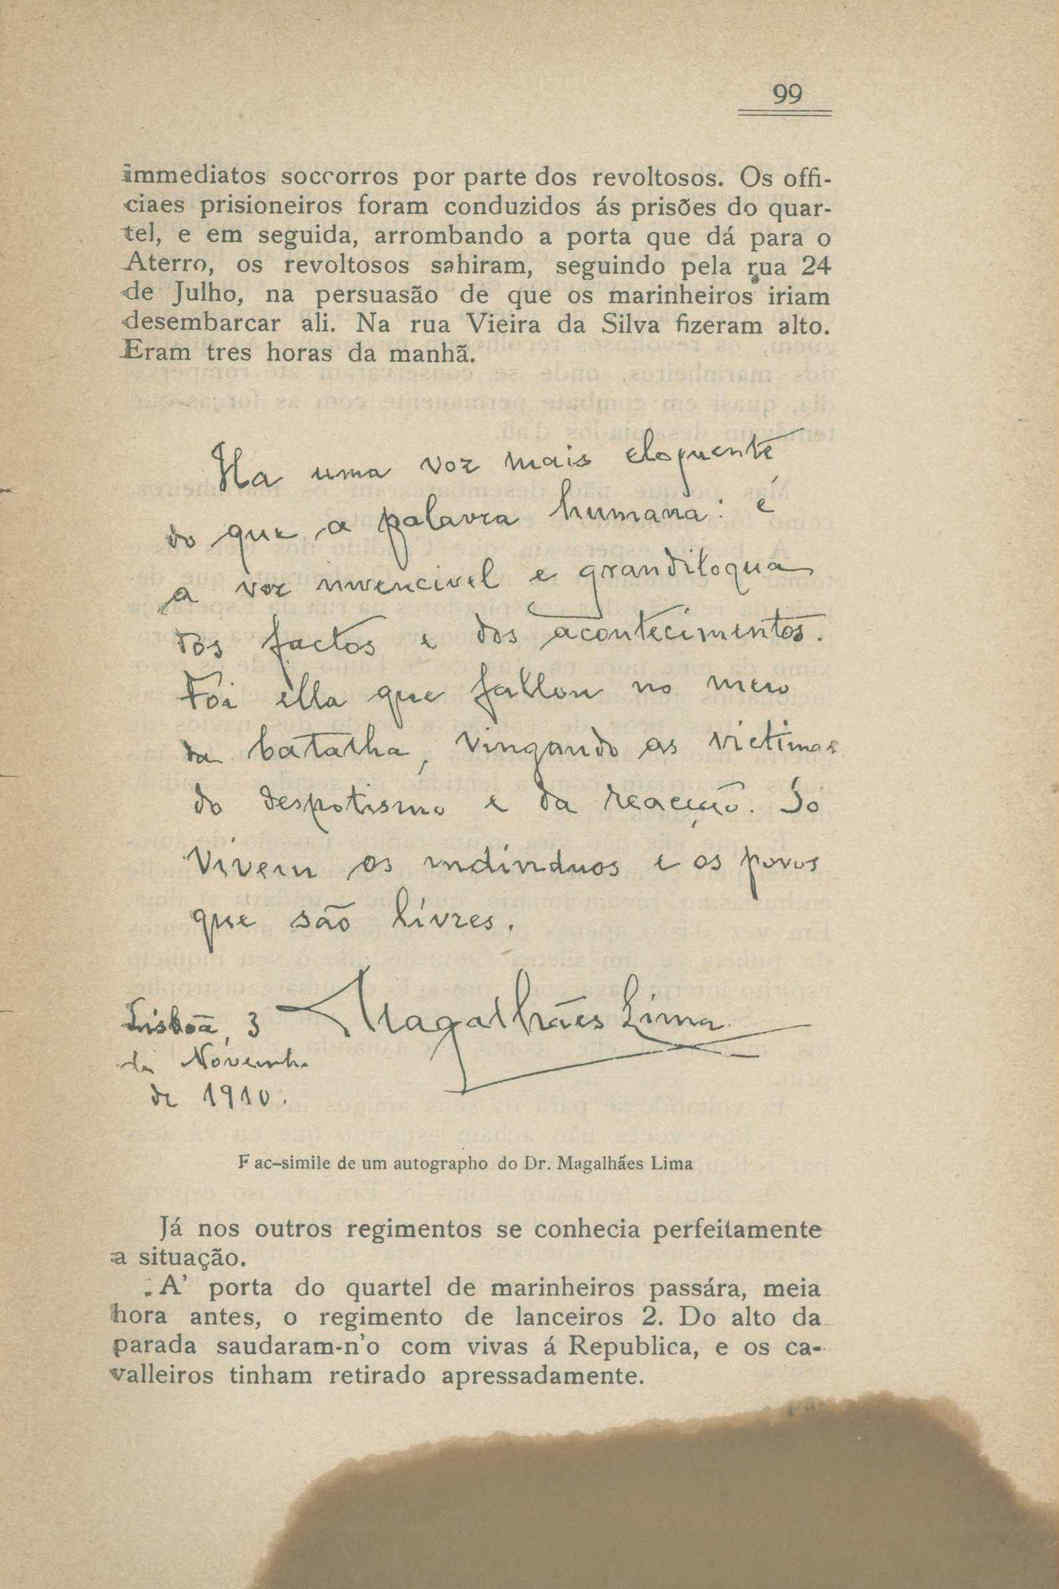 99
immediatos soccorros por parte dos revoltosos. Os offi-
ciaes prisioneiros foram conduzidos ás prisões do quar-
tel, e em seguida, arrombando a porta que dá para o
Aterro, os revoltosos sahiram, seguindo pela rua 24
de Julho, na persuasão de que os marinheiros iriam
desembarcar ali. Na rua Vieira da Silva fizeram alto.
Eram tres horas da manhã.
Ha uma voz mais eloquente
do que a palavra humana: é
a voz invencivel e grandiloqua
dos factos e dos acontecimentos.
Foi ella que fallou no meio
da batalha, vingando as victimas
do despotismo e da reacção. Só
vivem os individuos e os povos
que são livres.
Lisboa, 3 Magalhães Lima
de Novembro
de 1910.
Fac-simile de um autographo do Dr. Magalhães Lima
Já nos outros regimentos se conhecia perfeitamente
a situação.
A' porta do quartel de marinheiros passára, meia
hora antes, o regimento de lanceiros 2. Do alto da
parada saudaram-n'o com vivas á Republica, e os ca-
valleiros tinham retirado apressadamente.